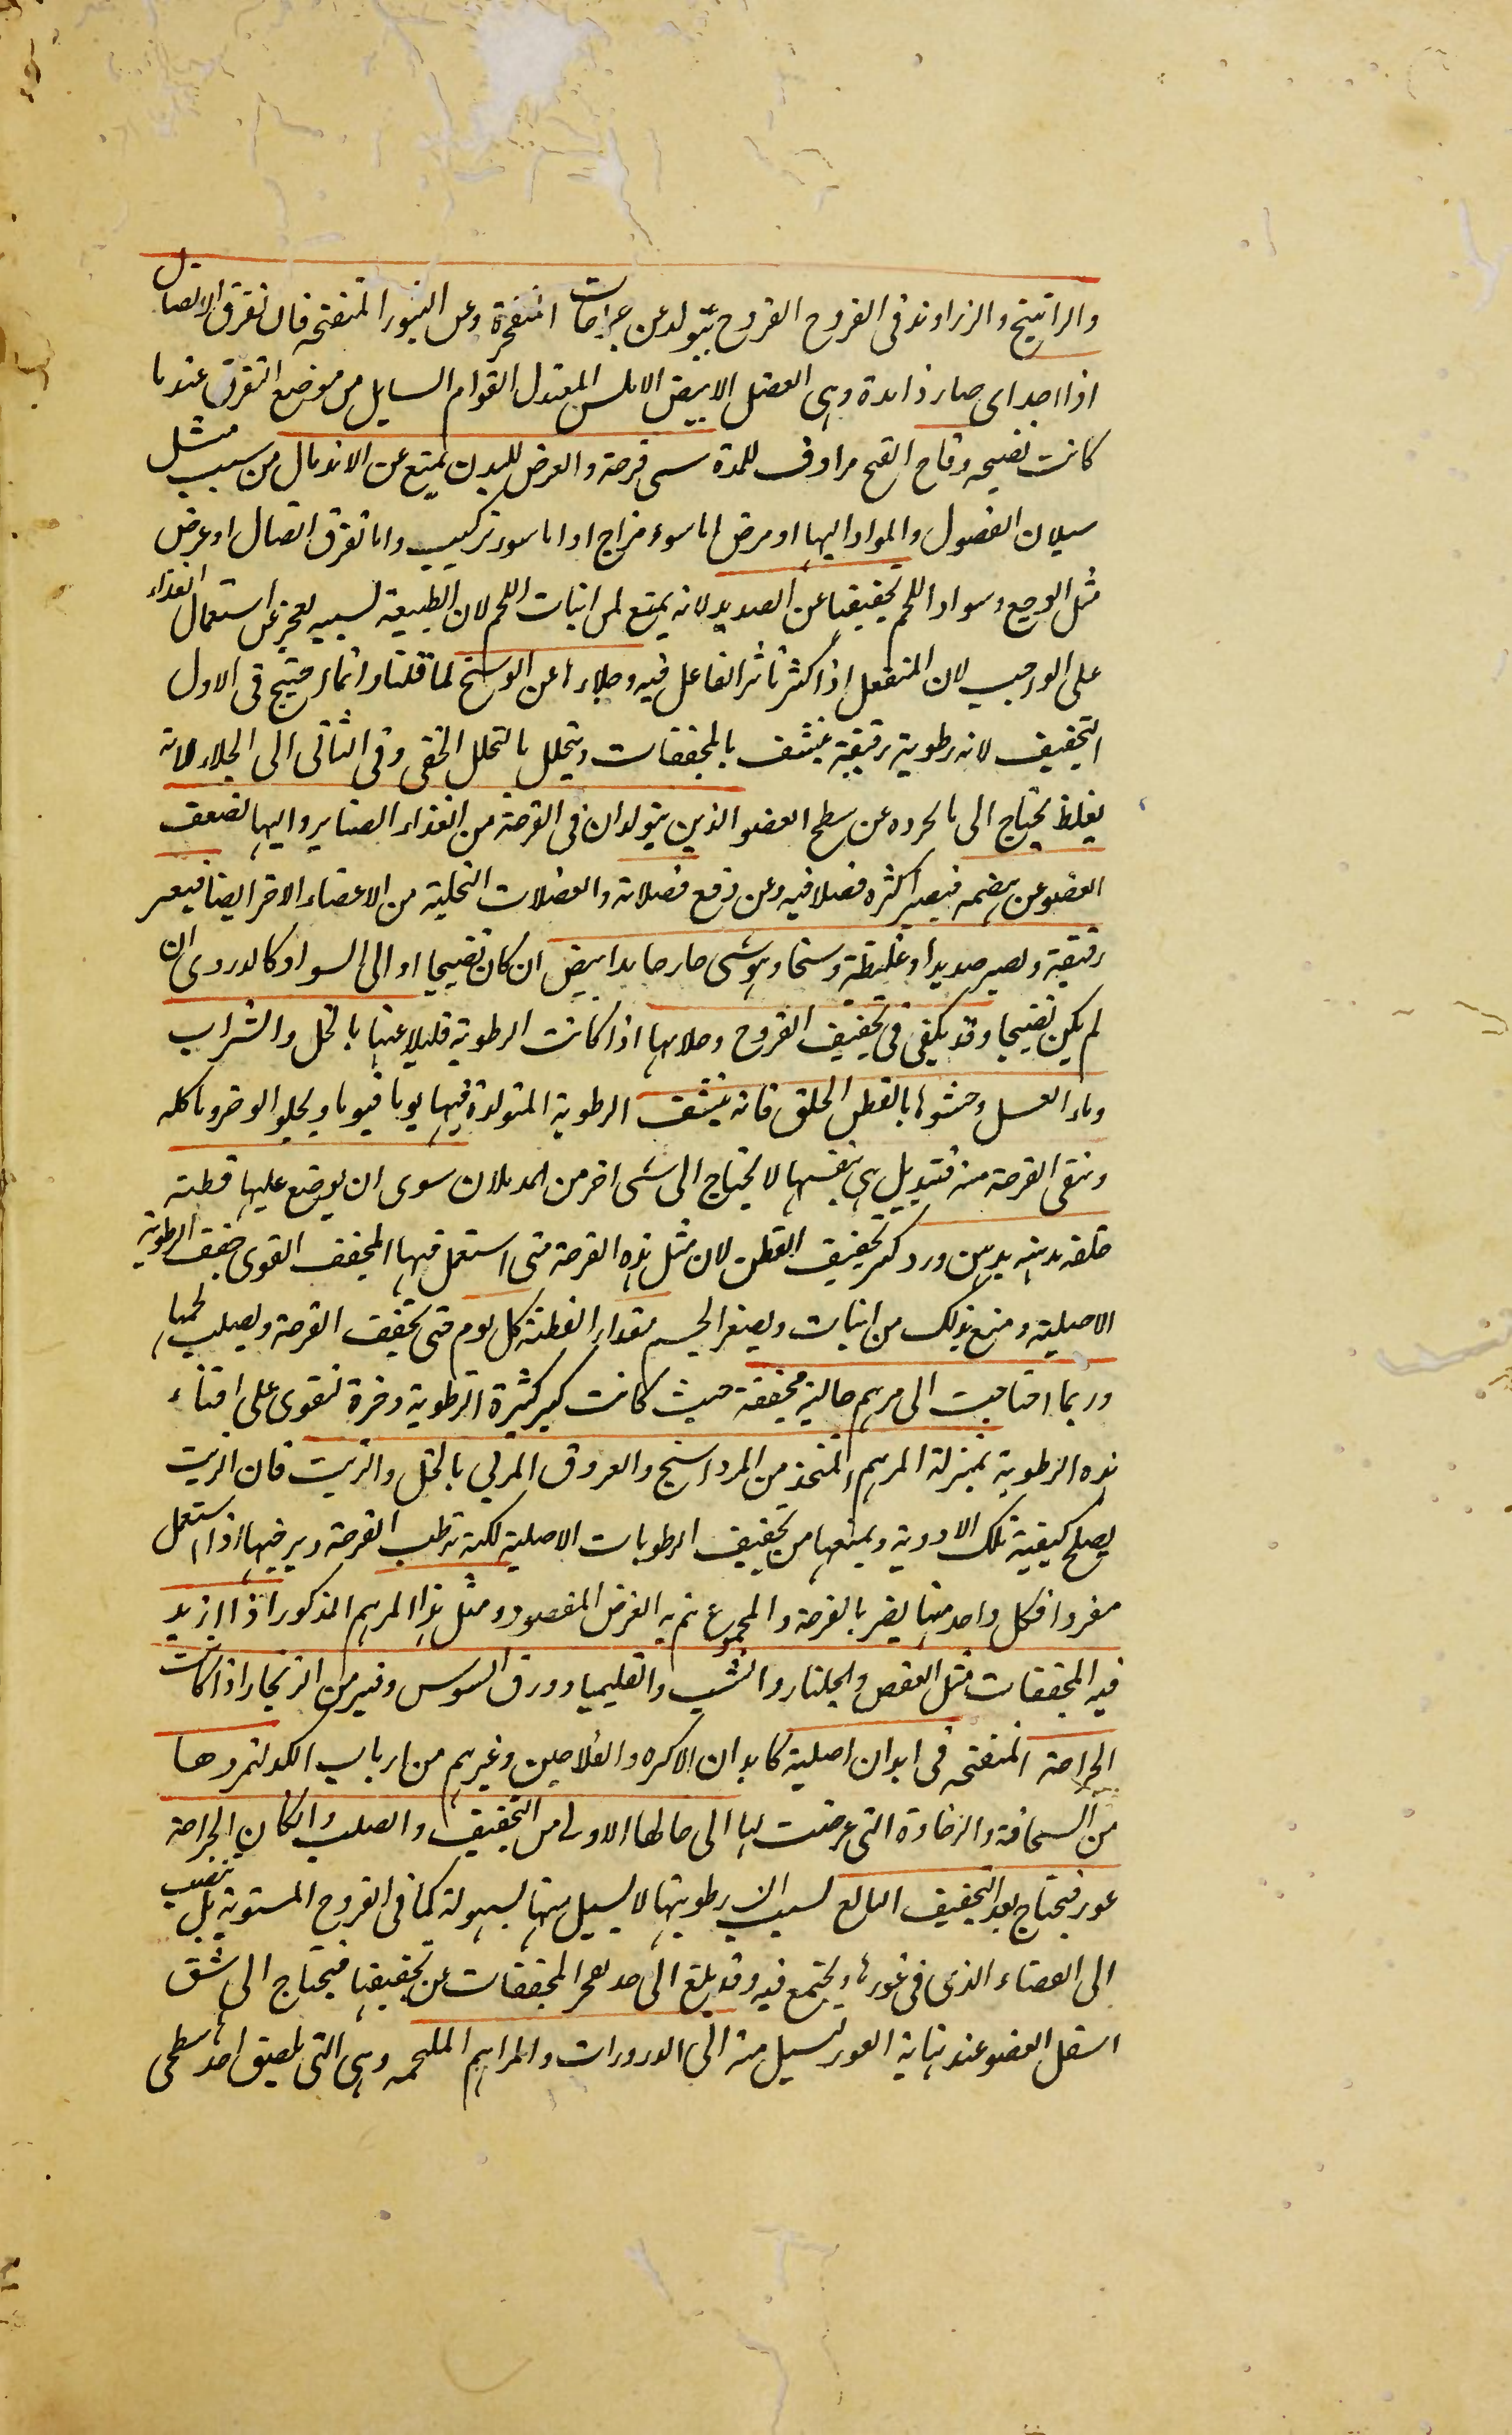 والراتينج والزراوند فى القروح القروح يتولد عن جراحات المنفجرة وعن البثور المتفتحه فان تفرق الاتصال
اذا اجد اى صار ذا مدة وهى الفضل الابيض الاملس المعتدل القوام السايل من موضع التفرق عندما
كانت نضيجه وقاح القيح مرادف للمدة سمى قرحة والعرض للبدن يمنع عن الاندمال من سبب مثل
سيلان الفضول والمواد اليها او مرض اما سوء مزاج او اما سوء تركيب واما تفرق اتصال او عرض
مثل الوجع وسواد اللحم تجفيفها عن الصديد لانه يمنع من انبات اللحم لان الطبيعة بسببه يعجز عن استعمال الغذاء
على الواجب لان المنفعل اذا كثر تاثر الفاعل فيه وجلاءها عن الوسخ لما قلنا وانما احتيج فى الاول
التجفيف لانه رطوبة رقيقة ينشف بالمجففات ويتحلل بالتحلل الخفى وفى الثانى الى الجلاء لانه
يغلظ يحتاج الى ما يجرده عن سطح العضو الذين يتولدان فى القرحة من الغذاء الصاير واليها لضعف
العضو عن هضمه فيصير اكثره فضلا فيه وعن دفع فضلاته والفضلات المتحلبة من الاعضاء الاخر ايضا فيعسر
رقيقة ويصير صديدا وغليظة وسخا وهو شى صار جامدا ابيض ان كان نضيجا او الى السواد كالدردى ان
لم يكن نضيجا وقد يكفى فى تجفيف القروح وجلاءها اذا كانت الرطوبة قليلا غسلها بالخل والشراب
وماء العسل وحشوها بالقطن الخلق فانه ينشف الرطوبة المتولدة فيها يوما فيوما ويجلو الوضر وياكله
وينقى القرحة منه فتندمل هى بنفسها لا يحتاج الى شى اخر من المدملات سوى ان يوضع عليها قطنة
خلقه مدهنه بدهن ورد كسر تجفيف القطن لان مثل هذه القرحة متى استعمل فيها المجفف القوى جفف الرطوبة
الاصلية ومنع بذلك من انبات ويصغر الجسم مقدار القطنة كل يوم حتى يجفف القرحة ويصلب لحمها
وربما احتاجت الى مرهم جالية مجففة حيث كانت كبر كثيرة الرطوبة وضرة لتقوى على افناء
هذه الرطوبة بمنزلة المرهم المتخذ من المرداسنج والعروق المربى بالخل والزيت فان الزيت
يصلح كيفية تلك الادوية ويمنعها من تجفيف الرطوبات الاصلية لكنه ترطب القرحة ويرخيها اذا استعمل
مفردا فكل واحد منها يضر بالقرحة والمجموع يتم به الغرض المقصود ومثل هذا المرهم المذكور اذا ازيد
فيه المجففات مثل العفص والجلنار والشب والقليميا وورق السوس ويسير من الزنجار اذا كانت
الجراحة المنفتحه فى ابدان اصلية كابدان الاكره والفلاحين وغيرهم من ارباب الكد لتمردها
من السخافة والرخاوة التى عرضت لها الى حالها الاولى من التجفيف والصلب وان كان الجراحة
غور فيحتاج بعد التجفيف البالغ لسبب ان رطوبتها لا يسيل منها بسهولة كما فى القروح المستوية بل ينصب
الى الفضاء الذى فى غورها ويجتمع فيه وقد يبلغ الى حد يعجز المجففات عن تجفيفها فيحتاج الى شق
اسفل العضو عند نهاية الغور ليسيل منه الى الذرورات والمراهم الملحمه وهى التى يلصق احد سطحى